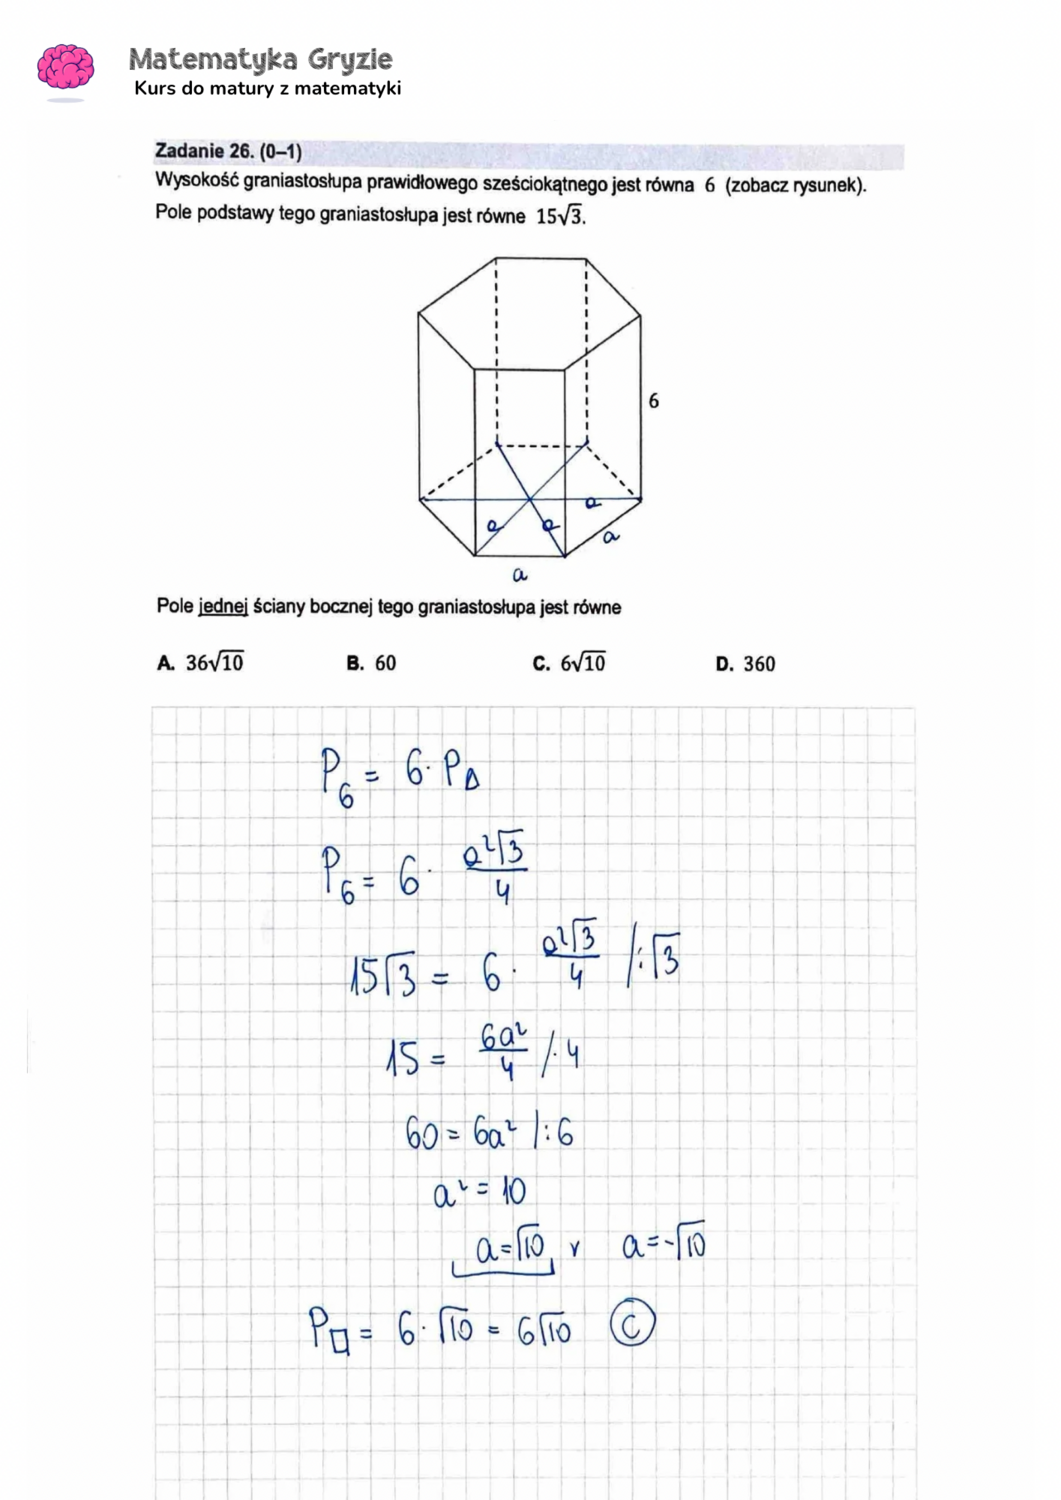 Matematyka Gryzie
Kurs do matury z matematyki
Zadanie 26. (0–1)
Wysokość graniastosłupa prawidłowego sześciokątnego jest równa 6 (zobacz rysunek).
Pole podstawy tego graniastosłupa jest równe 15√3.
6
a
a a
a
a
Pole jednej ściany bocznej tego graniastosłupa jest równe
A. 36√10 B. 60 C. 6√10 D. 360
P₆ = 6 · P△
P₆ = 6 · a²√3/4
15√3 = 6 · a²√3/4 /:√3
15 = 6a²/4 /·4
60 = 6a² /:6
a² = 10
a = √10 v a = -√10
P□ = 6 · √10 = 6√10 C